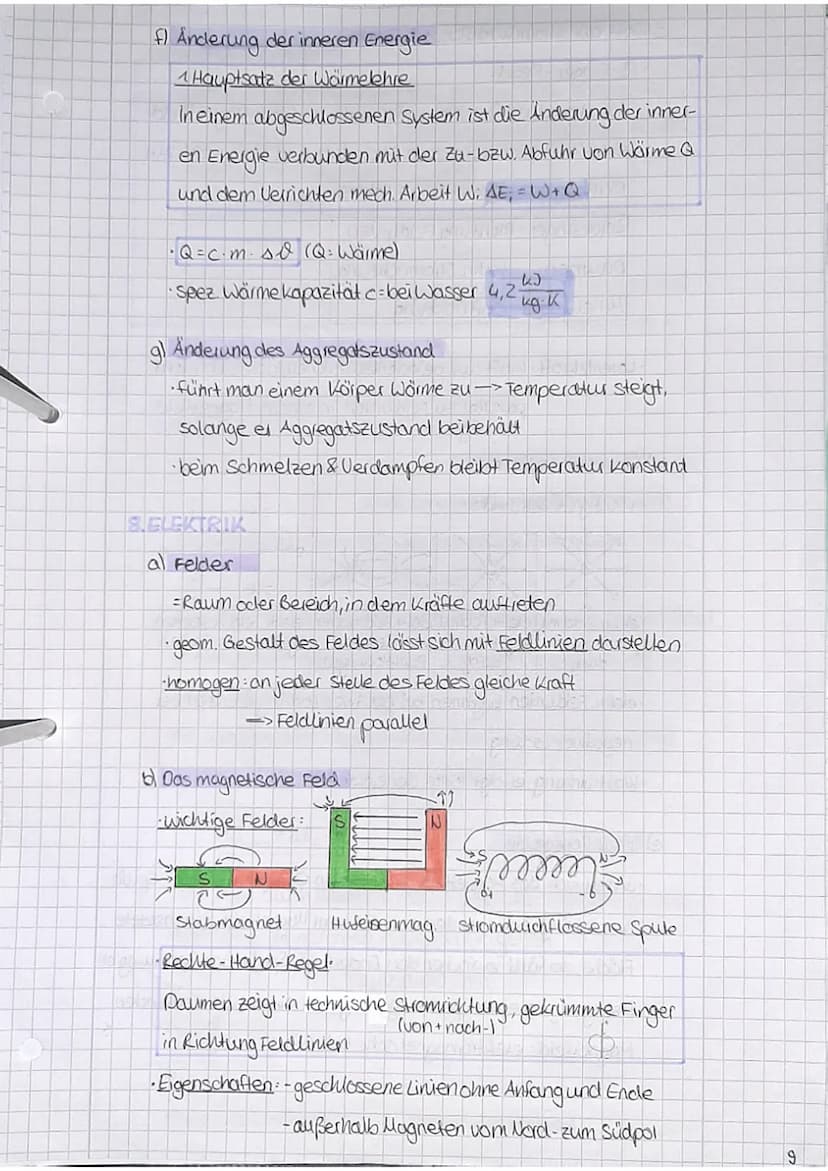 f) Änderung der inneren Energie
1. Hauptsatz der Wärmelehre
In einem abgeschlossenen System ist die Änderung der inner-
en Energie verbunden mit der Zu- bzw. Abfuhr von Wärme Q
und dem Verrichten mech. Arbeit W: ΔEi = W + Q
· Q = c · m · Δϑ (Q: Wärme)
· spez Wärmekapazität c = bei Wasser 4,2 kJ/kg·K
g) Änderung des Aggregatszustand
· führt man einem Körper Wärme zu —> Temperatur steigt,
solange er Aggregatszustand beibehält
· beim Schmelzen & Verdampfen bleibt Temperatur konstant
8. ELEKTRIK
a) Felder
= Raum oder Bereich, in dem Kräfte auftreten
· geom. Gestalt des Feldes lässt sich mit Feldlinien darstellen
· homogen: an jeder Stelle des Feldes gleiche Kraft
—> Feldlinien parallel
b) Das magnetische Feld
· wichtige Felder:
S N
S N
S N
+ -
Stabmagnet Hufeisenmag. stromdurchflossene Spule
· Rechte-Hand-Regel:
Daumen zeigt in technische Stromrichtung, gekrümmte Finger
(von + nach -)
in Richtung Feldlinien
· Eigenschaften: - geschlossene Linien ohne Anfang und Ende
- außerhalb Magneten vom Nord- zum Südpol
9